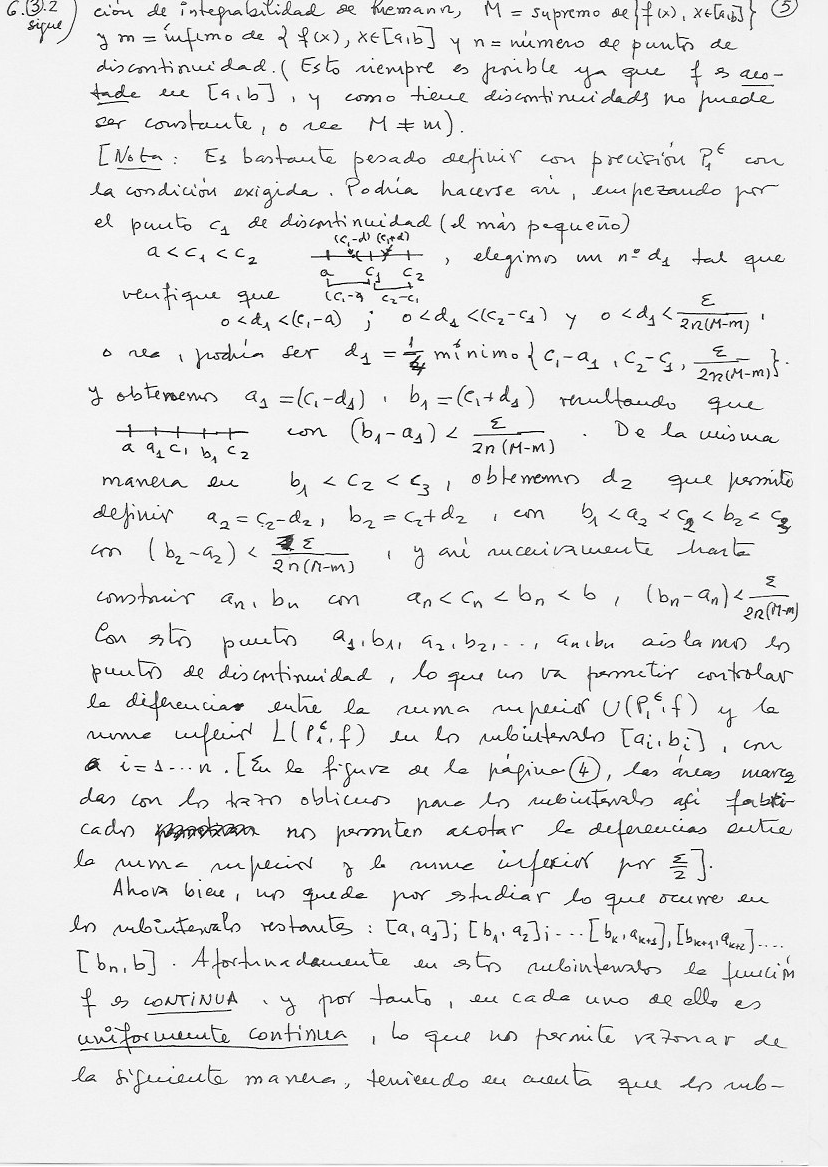 6.③.2 sigue) ción de integrabilidad de Riemann, M = supremo de {f(x), x∈[a,b]} ⑤
y m = ínfimo de {f(x), x∈[a,b] y n = número de puntos de
discontinuidad. (Esto siempre es posible ya que f es aco-
tada en [a,b], y como tiene discontinuidads no puede
ser constante, o sea M ≠ m).
[Nota: Es bastante pesado definir con precisión P₁^ε con
la condición exigida. Podría hacerse así, empezando por
el punto c₁ de discontinuidad (el más pequeño)
(c₁-d) (c₁+d)
a < c₁ < c₂ a c₁ c₂ , elegimos un nº d₁ tal que
verifique que (c₁-a) c₂-c₁
0<d₁<(c₁-a) ; 0<d₁<(c₂-c₁) y 0<d₁< ε/2n(M-m) ,
o sea, podría ser d₁ = 1/4 mínimo {c₁-a₁, c₂-c₁, ε/2n(M-m)}.
y obtenemos a₁=(c₁-d₁), b₁=(c₁+d₁) resultando que
a a₁ c₁ b₁ c₂ con (b₁-a₁) < ε/2n(M-m) . De la misma
manera en b₁ < c₂ < c₃, obtenemos d₂ que permite
definir a₂=c₂-d₂, b₂=c₂+d₂, con b₁<a₂<c₂<b₂<c₃
con (b₂-a₂) < ε/2n(M-m) , y así sucesivamente hasta
construir aₙ, bₙ con aₙ<cₙ<bₙ<b, (bₙ-aₙ)< ε/2n(M-m)
Con estos puntos a₁,b₁, a₂,b₂,..., aₙ,bₙ aislamos los
puntos de discontinuidad, lo que nos va permitir controlar
la diferencia entre la suma superior U(P₁^ε,f) y la
suma inferior L(P₁^ε,f) en los subintervalos [aᵢ,bᵢ], con
i=1...n. [En la figura de la página ④, las áreas marca
das con los trazos oblicuos para los subintervalos así fabri-
cados nos permiten acotar la diferencias entre
la suma superior y la suma inferior por ε/2].
Ahora bien, nos queda por estudiar lo que ocurre en
los subintervalos restantes: [a,a₁]; [b₁,a₂]; ...[bₖ,aₖ₊₁],[bₖ₊₁,aₖ₊₂]....
[bₙ,b]. Afortunadamente en estos subintervalos la función
f es CONTINUA, y por tanto, en cada uno de ello es
uniformemente continua, lo que nos permite razonar de
la siguiente manera, teniendo en cuenta que los sub-